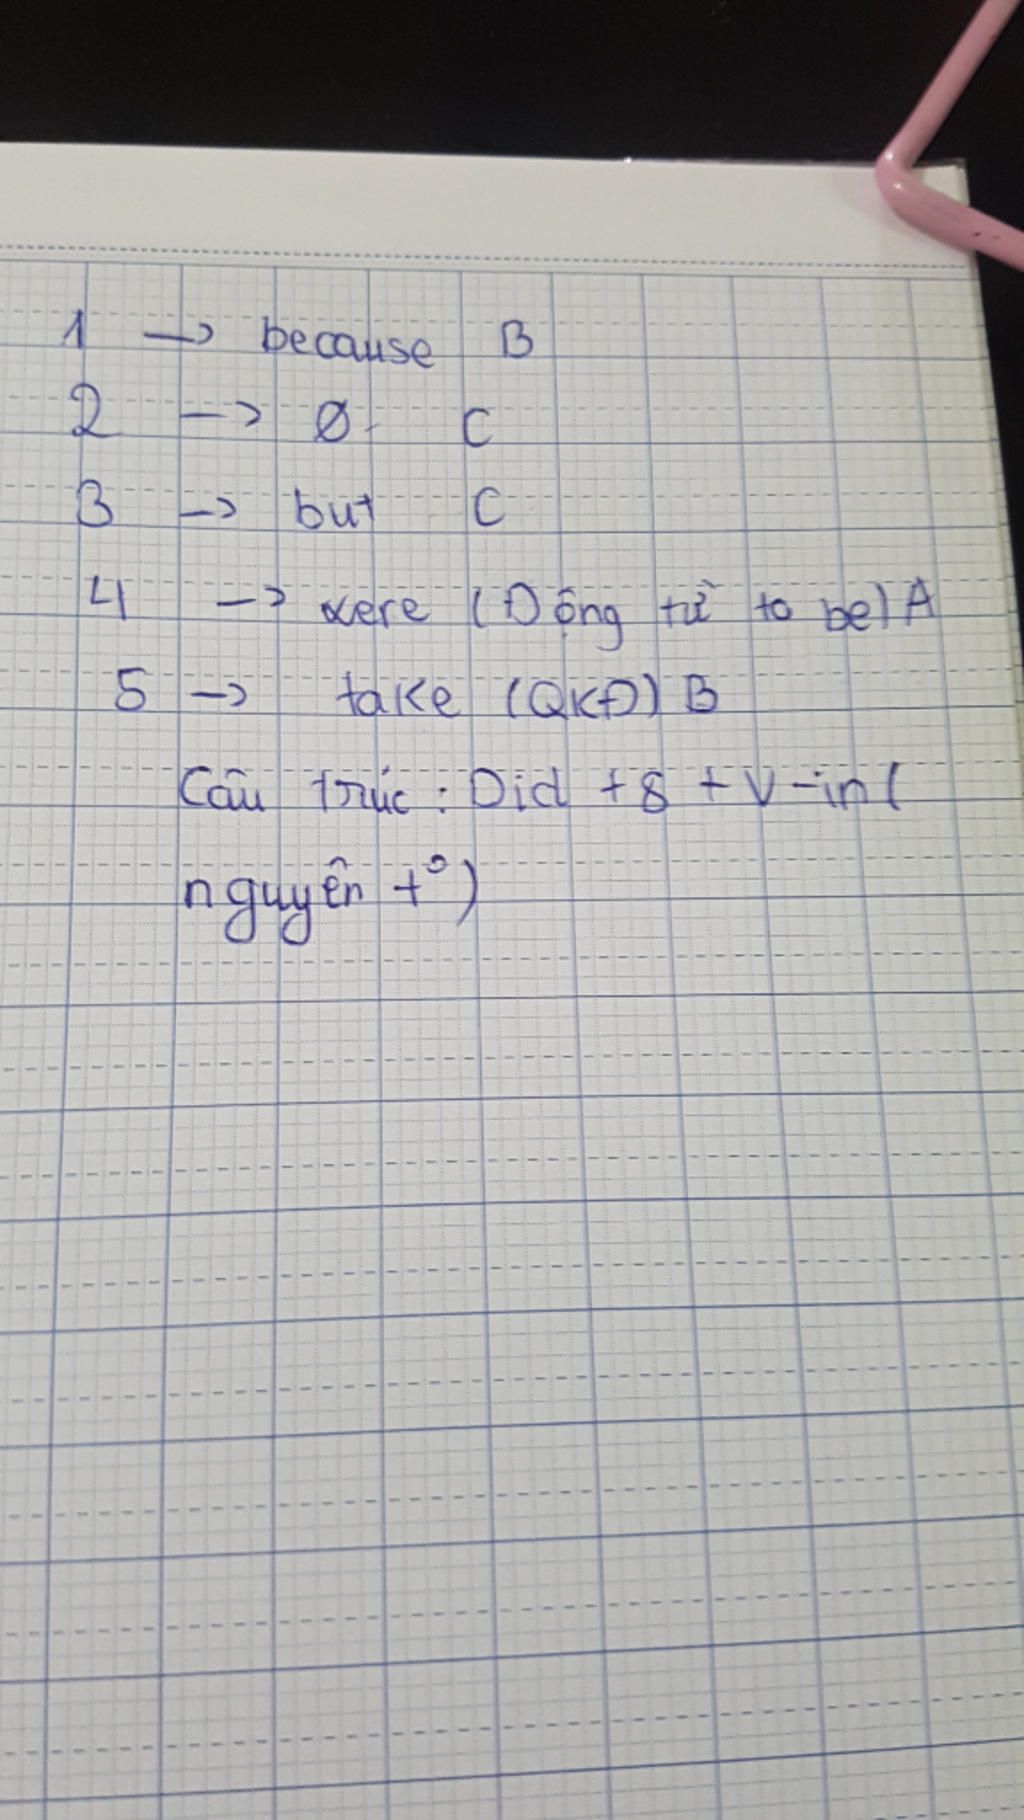 1 → because B
2 → Ø C
3 → but C
4 → were (Động từ to be) A
5 → take (QKĐ) B
Cấu trúc: Did + S + V-in (
nguyên t°)